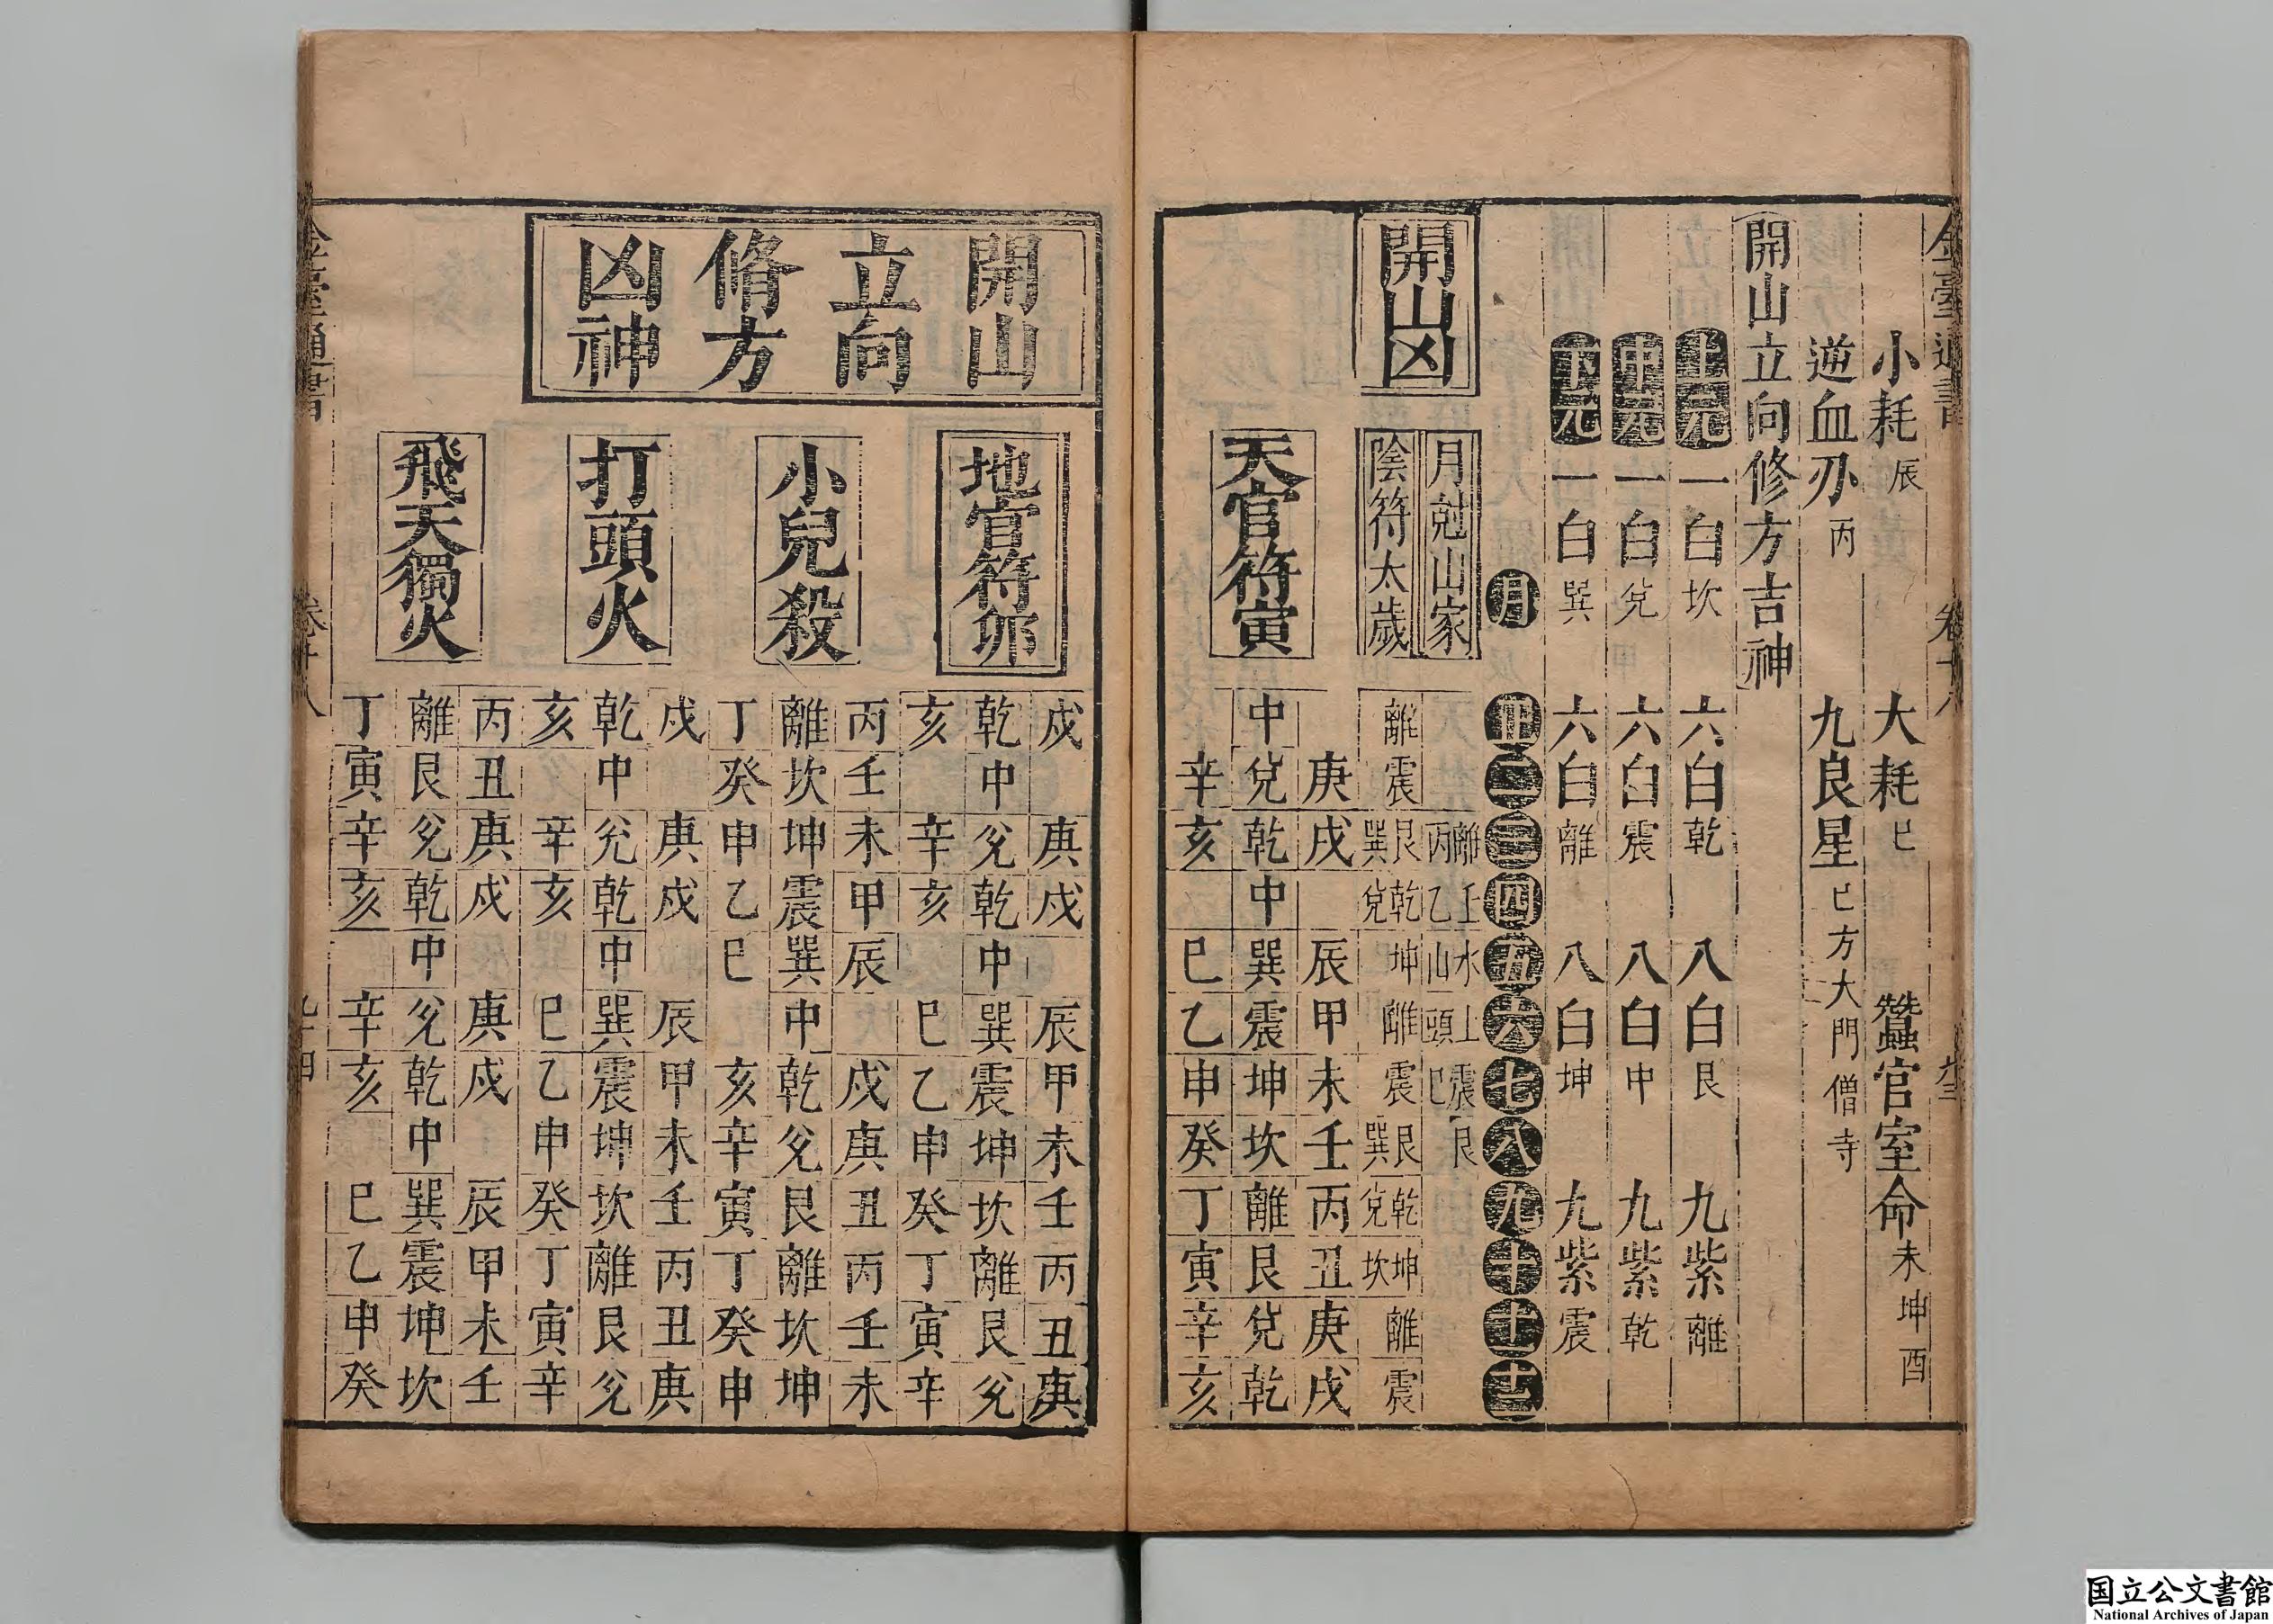 小耗辰　大耗巳　蠶官室命未坤酉
逆血刃丙　九良星巳方大門僧寺
開山立向修方吉神
上元一白坎六白乾八白艮九紫離
中元一白兌六白震八白中九紫乾
下元一白巽六白離八白坤九紫震
月正二三四五六七八九十十一十二
開山凶
月尅山家
離 水土 震艮
丙 乙 山頭 巳
陰符太歲
離震艮乾坤離震艮乾坤離震
巽兌 巽兌坎
天官符寅
庚戌 辰甲未壬丙丑庚戌
中兌乾中巽震坤坎離艮兌乾
辛亥 巳乙申癸丁寅辛亥
開山
立向
脩方
凶神
地官符卯
戌 庚戌 辰甲未壬丙丑庚
乾中兌乾中巽震坤坎離艮兌
亥 辛亥 巳乙申癸丁寅辛
小兒殺
丙壬未甲辰 戌庚丑丙壬未
離坎坤震巽中乾兌艮離坎坤
丁癸申乙巳 亥辛寅丁癸申
打頭火
戌 庚戌 辰甲未壬丙丑庚
乾中兌乾中巽震坤坎離艮兌
亥 辛亥 巳乙申癸丁寅辛
飛天獨火
丙丑庚戌 庚戌 辰甲未壬
離艮兌乾中兌乾中巽震坤坎
丁寅辛亥 辛亥 巳乙申癸
国立公文書館
National Archives of Japan